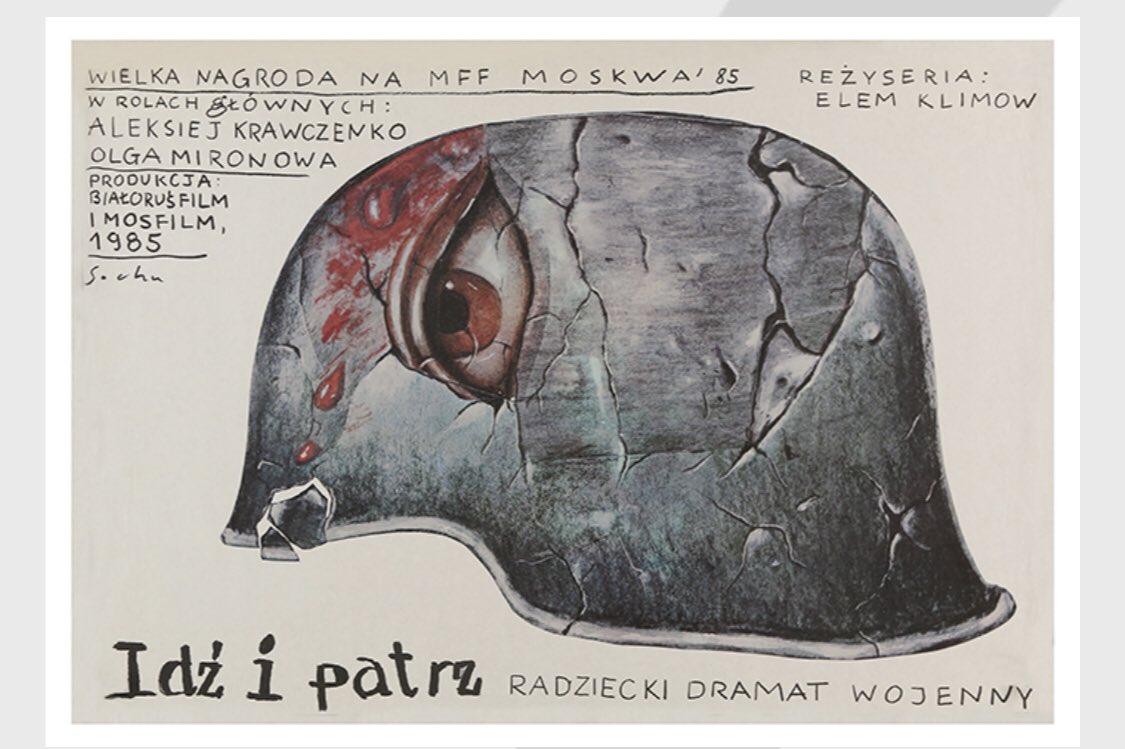 WIELKA NAGRODA NA MFF MOSKWA' 85
W ROLACH GŁÓWNYCH:
ALEKSIEJ KRAWCZENKO
OLGA MIRONOWA
PRODUKCJA:
BIAŁORUŚFILM
I MOSFILM,
1985
Socha
REŻYSERIA:
ELEM KLIMOW
Idź i patrz
RADZIECKI DRAMAT WOJENNY